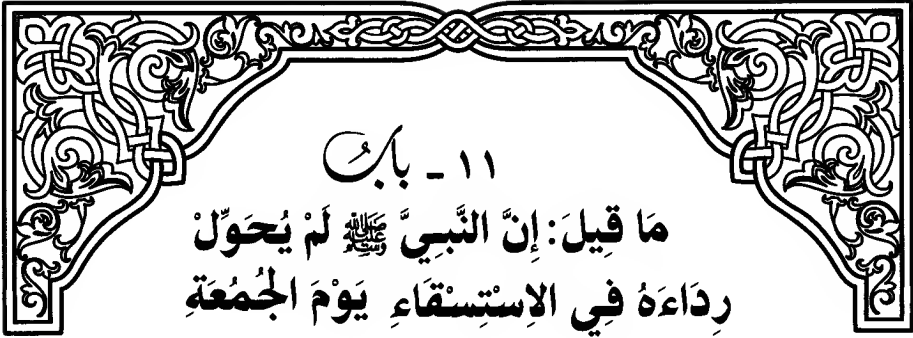 ١١ - بابُ
مَا قِيلَ: إِنَّ النَّبِيَّ ﷺ لَمْ يُحَوِّلْ
رِدَاءَهُ فِي الِاسْتِسْقَاءِ يَوْمَ الجُمُعَةِ